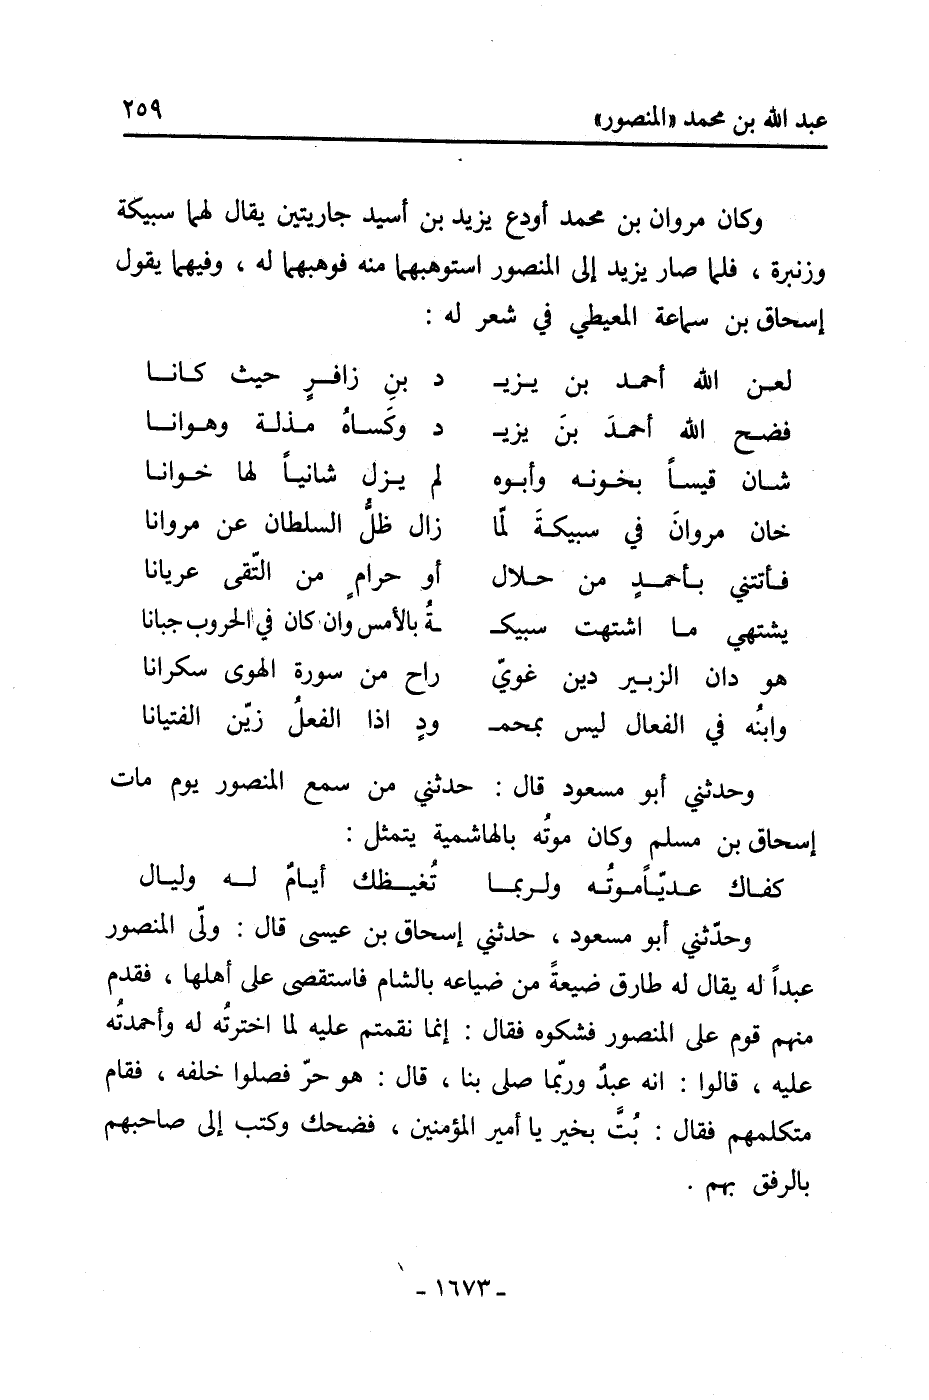 عبد الله بن محمد «المنصور» ٢٥٩
وكان مروان بن محمد أودع يزيد بن أسيد جاريتين يقال لهما سبيكة
وزنبرة ، فلما صار يزيد إلى المنصور استوهبهما منه فوهبهما له ، وفيهما يقول
إسحاق بن سماعة المعيطي في شعر له :
لعـن الله أحمـد بن يـزيـ د بنِ زافـرٍ حيث كـانـا
فضـح الله أحمـدَ بنَ يزيـ د وكَسـاهُ مـذلـة وهـوانـا
شـان قيسـاً بخـونـه وأبـوه لم يـزل شانيـاً لها خـوانـا
خان مروانَ في سبيكـةَ لمّا زال ظلُّ السلطان عن مروانا
فـأتتني بـأحمـدٍ من حـلال أو حرامٍ من التّقى عريانا
يشتهي مـا اشتهت سبيكـ ـةُ بالأمس وان كان في الحروب جبانا
هو دان الزبـير دين غويّ راح من سورة الهوى سكرانا
وابنُه في الفعال ليس بمحمـ ودٍ اذا الفعلُ زيّن الفتيانا
وحدثني أبو مسعود قال : حدثني من سمع المنصور يوم مات
إسحاق بن مسلم وكان موتُه بالهاشمية يتمثل :
كفـاك عـديّـاً موتُـه ولـربمـا تُغيـظك أيـامٌ لـه وليال
وحدّثني أبو مسعود ، حدثني إسحاق بن عيسى قال : ولّى المنصور
عبداً له يقال له طارق ضيعةً من ضياعه بالشام فاستقصى على أهلها ، فقدم
منهم قوم على المنصور فشكوه فقال : إنما نقمتم عليه لما اخترتُه له وأحمدتُه
عليه ، قالوا : انه عبدٌ وربّما صلى بنا ، قال : هو حرّ فصلوا خلفه ، فقام
متكلمهم فقال : بُتَّ بخير يا أمير المؤمنين ، فضحك وكتب إلى صاحبهم
بالرفق بهم .
ـ ١٦٧٣ ـ